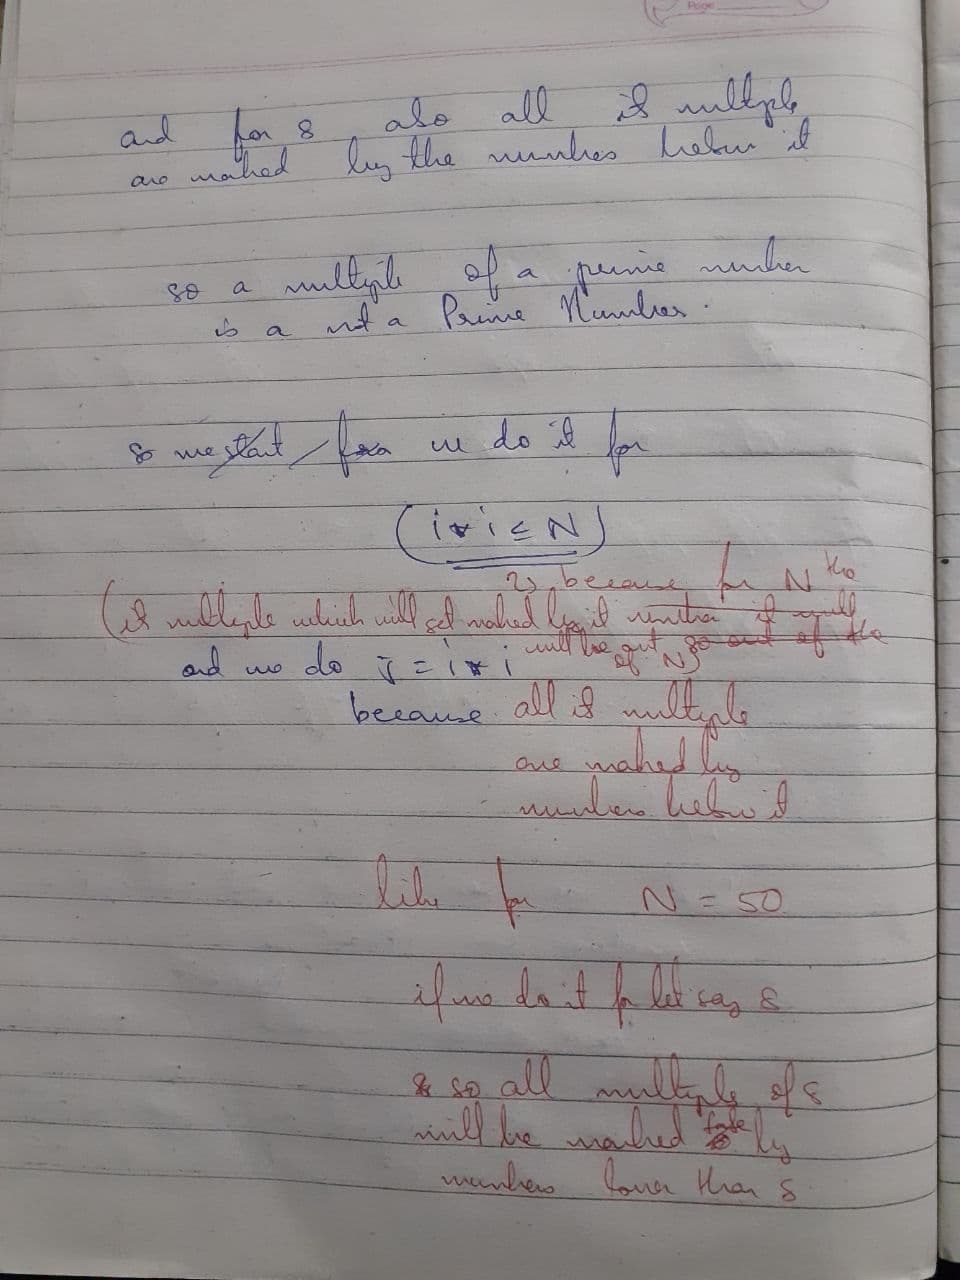 Page
and for 8 also all it multiple
are marked by the numbers below it
so a multiple of a prime number
is a not a Prime Number.
so we start from we do it for
(i * i ≤ N)
because for N the
(it multiple which will get marked by it number it will
will be out of N) go out of the
and we do j = i * i
because all it multiple
are marked by
numbers below it
like for N = 50
if we do it for let say 8
& so all multiple of 8
will be marked false by
numbers lower than 8